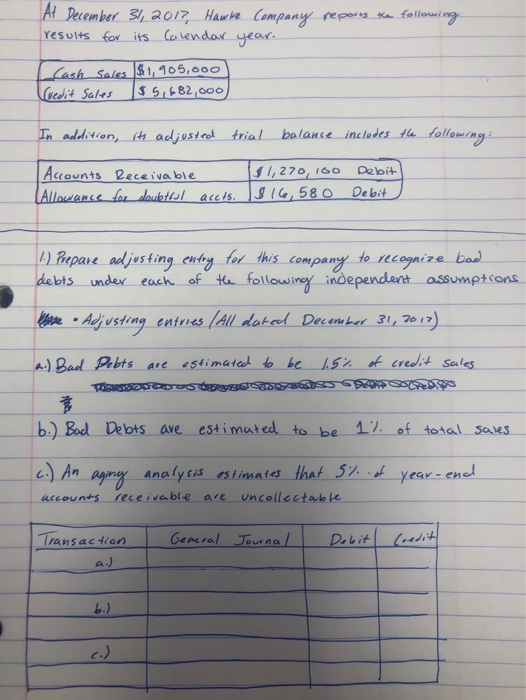 At December 31, 2017, Hawke Company reports the following
results for its Calendar year.
Cash Sales $1,905,000
Credit Sales $5,682,000
In addition, its adjusted trial balance includes the following:
Accounts Receivable $1,270,100 Debit
Allowance for doubtful accts. $16,580 Debit
1.) Prepare adjusting entry for this company to recognize bad
debts under each of the following independent assumptions
• Adjusting entries (All dated December 31, 2017)
a.) Bad Debts are estimated to be 1.5% of credit sales
b.) Bad Debts are estimated to be 1% of total sales
c.) An aging analysis estimates that 5% of year-end
accounts receivable are uncollectable
Transaction General Journal Debit Credit
a.)
b.)
c.)